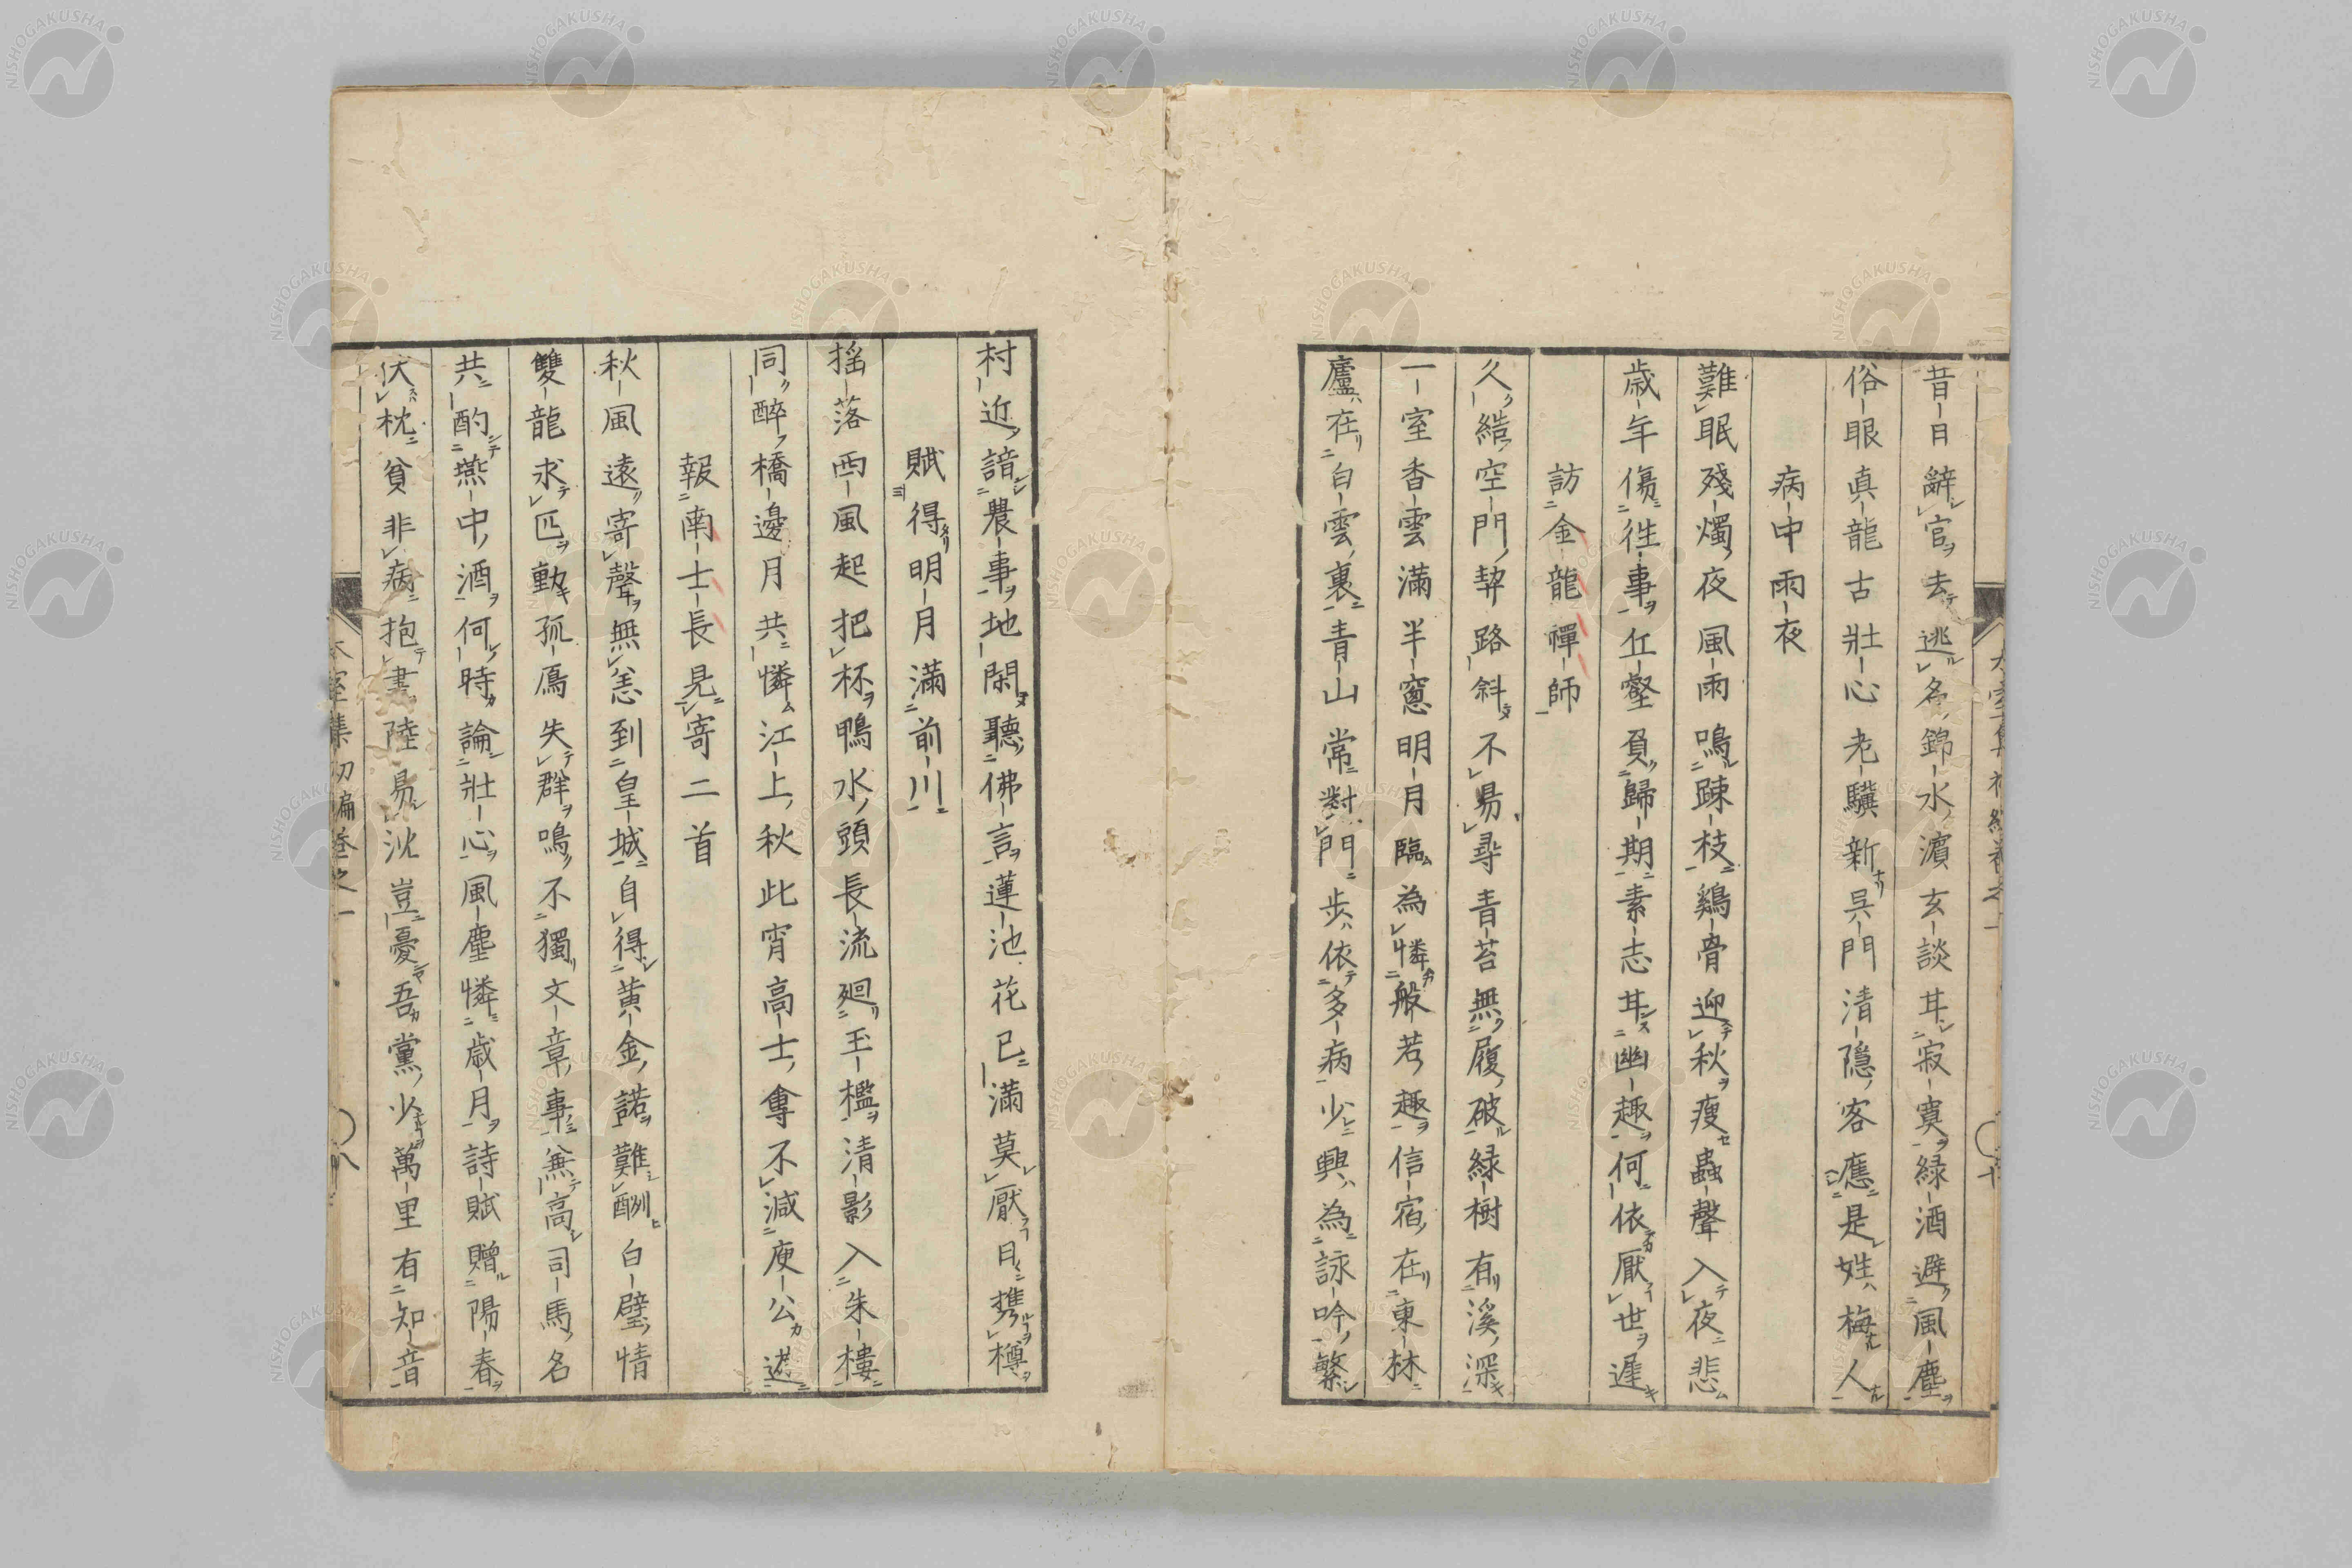 昔日辭官去逃名錦水濵玄談耳寂寞緑酒避風塵
俗眼真龍古壯心老驥新呉門清隠客應是姓梅人
病中雨夜
難眠殘燭夜風雨鳴踈枝鷄骨迎秋瘦蟲聲入夜悲
歳年傷徃事丘壑負歸期素志耳幽趣何依厭世遲
訪金龍禪師
久結空門契路斜不易尋青苔無履破緑樹有溪深
一室香雲滿半窻明月臨為憐般若趣信宿在東林
廬在白雲裏青山常對門歩依多病少興為詠吟繁
村近諳農事地閑聽佛言蓮池花已滿莫厭日携樽
賦得明月滿前川
揺落西風起把杯鴨水頭長流廻玉檻清影入朱樓
同醉橋邊月共憐江上秋此宵高士會不減庾公遊
報南士長見寄二首
秋風遠寄聲無恙到皇城自得黄金諾難酬白璧情
雙龍求匹動孤鴈失群鳴不獨文章事兼高司馬名
共酌燕中酒何時論壯心風塵憐歳月詩賦贈陽春
伏枕貧非病抱書陸易沈豈憂吾黨少萬里有知音
室集初編卷之一